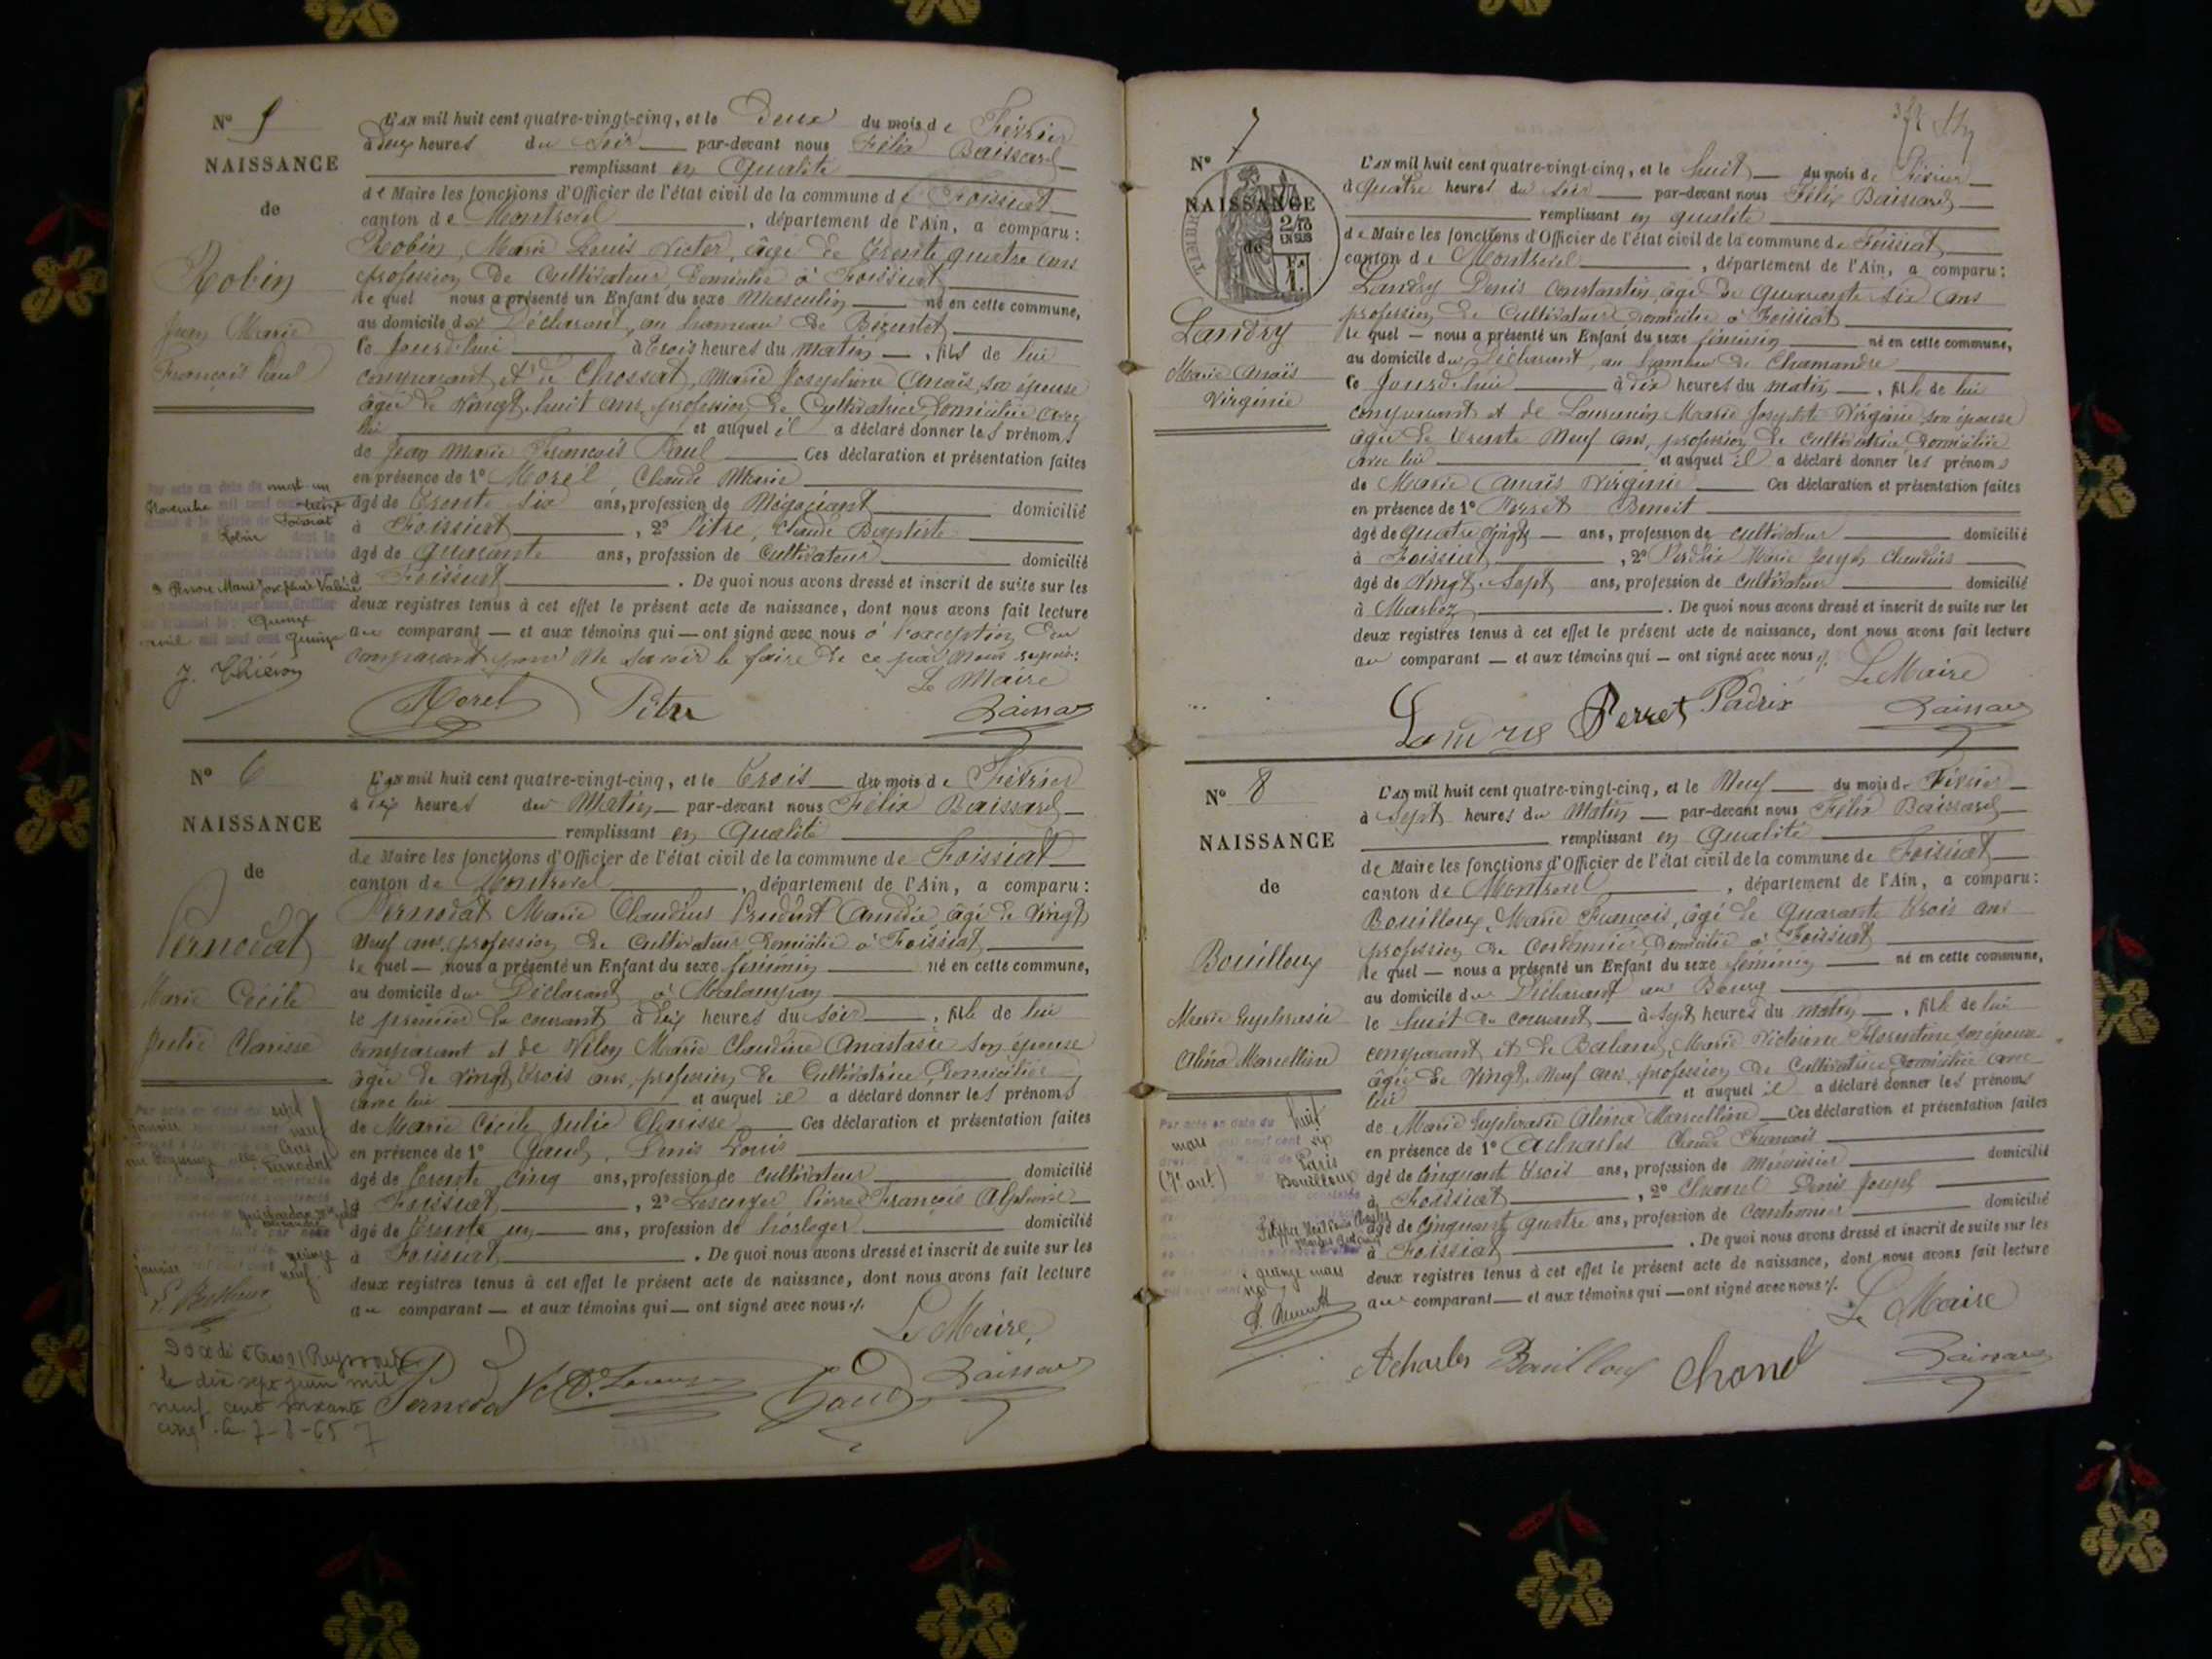 N° 5
NAISSANCE
de
Robin
Jean Marie
François Paul
L'AN mil huit cent quatre-vingt-cinq, et le Deux du mois de Février
à deux heures du Soir par-devant nous Félix Baissard
remplissant en Qualité
de Maire les fonctions d'Officier de l'état civil de la commune de Foissiat
canton de Montrevel, département de l'Ain, a comparu:
Robin, Marie Louis Victor, âgé de trente quatre ans
profession de Cultivateur, Domicilié à Foissiat
le quel nous a présenté un Enfant du sexe Masculin né en cette commune,
au domicile du Déclarant, au hameau de
ce Jourd'hui à trois heures du matin, fils de lui
comparant et de Chossat, Marie Joséphine Anaïs, son épouse
âgée de Vingt huit ans, profession de Cultivatrice, Domiciliée avec
lui et auquel il a déclaré donner les prénoms
de Jean Marie François Paul Ces déclaration et présentation faites
en présence de 1° Morel, Claude Marie
âgé de trente six ans, profession de Négociant domicilié
à Foissiat, 2° Pitre, Claude Baptiste
âgé de quarante ans, profession de Cultivateur domicilié
à Foissiat. De quoi nous avons dressé et inscrit de suite sur les
deux registres tenus à cet effet le présent acte de naissance, dont nous avons fait lecture
au comparant et aux témoins qui ont signé avec nous à l'exception du
comparant pour ne savoir le faire de ce par nous requis:
Le Maire
Morel Pitre Baissard
Par acte en date du vingt un
Novembre mil neuf cent treize
Foissiat
Robin
Marie Joséphine Valérie
quinze
avril mil neuf cent quinze
N° 6
NAISSANCE
de
Pernodat
Marie Cécile
Julie Clarisse
L'AN mil huit cent quatre-vingt-cinq, et le trois du mois de Février
à dix heures du Matin par-devant nous Félix Baissard
remplissant en Qualité
de Maire les fonctions d'Officier de l'état civil de la commune de Foissiat
canton de Montrevel, département de l'Ain, a comparu:
Pernodat Marie Claudius Prudent Amédée âgé de Vingt
Neuf ans, profession de Cultivateur, Domicilié à Foissiat
le quel nous a présenté un Enfant du sexe féminin né en cette commune,
au domicile du Déclarant, à
le premier du courant à dix heures du soir, fille de lui
comparant et de Marie Claudine Anastasie son épouse
âgée de vingt trois ans, profession de Cultivatrice, Domiciliée
avec lui et auquel il a déclaré donner les prénoms
de Marie Cécile Julie Clarisse Ces déclaration et présentation faites
en présence de 1° Gaud, Denis Louis
âgé de trente cinq ans, profession de cultivateur domicilié
à Foissiat, 2° Pierre François Alphonse
âgé de trente un ans, profession de horloger domicilié
à Foissiat. De quoi nous avons dressé et inscrit de suite sur les
deux registres tenus à cet effet le présent acte de naissance, dont nous avons fait lecture
au comparant et aux témoins qui ont signé avec nous
Le Maire,
Pernodat Gaud Baissard
sept
janvier neuf
Cras
sur Reyssouze Pernodat
quinze
janvier neuf
le dix sept juin mil
neuf cent soixante
cinq. le 7-8-65
N° 7
NAISSANCE
de
Landry
Marie Anaïs
Virginie
L'AN mil huit cent quatre-vingt-cinq, et le huit du mois de Février
à quatre heures du soir par-devant nous Félix Baissard
remplissant en qualité
de Maire les fonctions d'Officier de l'état civil de la commune de Foissiat
canton de Montrevel, département de l'Ain, a comparu:
Landry Denis Constantin, âgé de quarante six ans
profession de Cultivateur Domicilié à Foissiat
le quel nous a présenté un Enfant du sexe féminin né en cette commune,
au domicile du Déclarant, au hameau de Chamandre
ce Jourd'hui à dix heures du matin, fille de lui
comparant et de Marie Josephte Virginie, son épouse
âgée de trente Neuf ans, profession de cultivatrice Domiciliée
avec lui et auquel il a déclaré donner les prénoms
de Marie Anaïs Virginie Ces déclaration et présentation faites
en présence de 1° Perret Benoit
âgé de quatre vingts ans, profession de cultivateur domicilié
à Foissiat, 2° Perdrix Marie Joseph Claudius
âgé de Vingt Sept ans, profession de cultivateur domicilié
à Marboz. De quoi nous avons dressé et inscrit de suite sur les
deux registres tenus à cet effet le présent acte de naissance, dont nous avons fait lecture
au comparant et aux témoins qui ont signé avec nous
Le Maire
Landry Perret Perdrix Baissard
N° 8
NAISSANCE
de
Bouilloux
Marie Euphrasie
Alina Marcelline
L'AN mil huit cent quatre-vingt-cinq, et le Neuf du mois de Février
à Sept heures du Matin par-devant nous Félix Baissard
remplissant en Qualité
de Maire les fonctions d'Officier de l'état civil de la commune de Foissiat
canton de Montrevel, département de l'Ain, a comparu:
Bouilloux, Marie François, âgé de quarante trois ans
profession de Cordonnier, Domicilié à Foissiat
le quel nous a présenté un Enfant du sexe féminin né en cette commune,
au domicile du Déclarant au Bourg
le huit du courant à Sept heures du matin, fille de lui
comparant et de Marie Victorine Florentine son épouse
âgée de Vingt Neuf ans, profession de Cultivatrice Domiciliée avec
lui et auquel il a déclaré donner les prénoms
de Marie Euphrasie Alina Marcelline Ces déclaration et présentation faites
en présence de 1° Acharles Claude François
âgé de Cinquante trois ans, profession de Menuisier domicilié
à Foissiat, 2° Chanel Denis Joseph
âgé de cinquante quatre ans, profession de Cordonnier domicilié
à Foissiat. De quoi nous avons dressé et inscrit de suite sur les
deux registres tenus à cet effet le présent acte de naissance, dont nous avons fait lecture
au comparant et aux témoins qui ont signé avec nous
Le Maire
Acharles Bouilloux Chanel Baissard
Par acte en date du huit
mars mil neuf cent six
Paris
Bouilloux
quinze mars